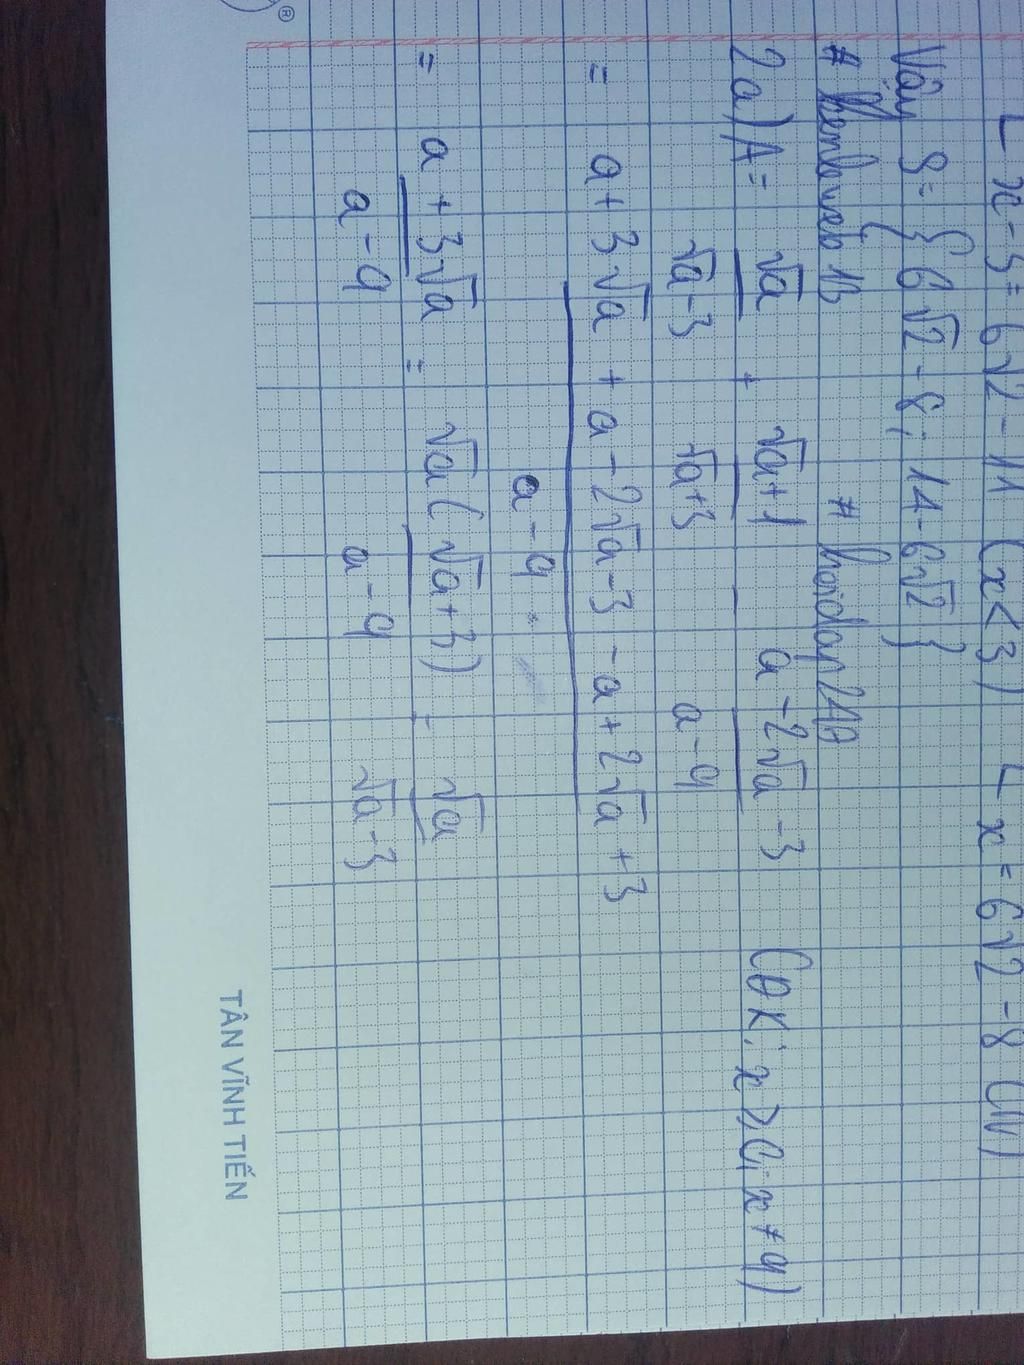 x - 3 = 6√2 - 11 (x < 3) x = 6√2 - 8 (N)
Vậy S = { 6√2 - 8 ; 14 - 6√2 }
# hoidap247
2a) A = √a / (√a - 3) + (√a + 1) / (√a + 3) - (a - 2√a - 3) / (a - 9) (ĐK: x ≥ 0; x ≠ 9)
= (a + 3√a + a - 2√a - 3 - a + 2√a + 3) / (a - 9)
= (a + 3√a) / (a - 9) = √a(√a + 3) / (a - 9) = √a / (√a - 3)
TÂN VĨNH TIẾN
®